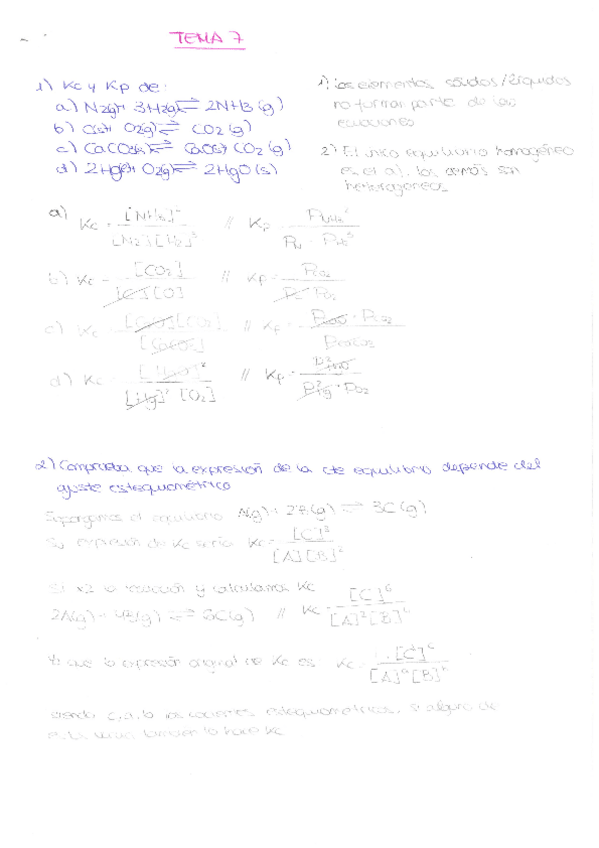 TEMA 7
1) Kc y Kp de:
a) N2(g) + 3H2(g) ⇌ 2NH3 (g)
b) C(s) + O2(g) ⇌ CO2 (g)
c) CaCO3(s) ⇌ CaO(s) + CO2 (g)
d) 2Hg(l) + O2(g) ⇌ 2HgO (s)
1) Los elementos sólidos/líquidos
no forman parte de las
ecuaciones
2) El único equilibrio homogéneo
es el a), los demás son
heterogéneos
a) Kc = [NH3]² / [N2][H2]³ // Kp = P_NH3² / P_N · P_H2³
b) Kc = [CO2] / [C][O] // Kp = P_CO2 / P_C · P_O2
c) Kc = [CaO][CO2] / [CaCO3] // Kp = P_CaO · P_CO2 / P_CaCO3
d) Kc = [HgO]² / [Hg]² [O2] // Kp = P²_HgO / P²_Hg · P_O2
2) Comprueba que la expresión de la cte equilibrio depende del
ajuste estequiométrico
Supongamos el equilibrio A(g) + 2B(g) ⇌ 3C (g)
Su expresión de Kc sería Kc = [C]³ / [A][B]²
Si x2 la reacción y calculamos Kc
2A(g) + 4B(g) ⇌ 6C(g) // Kc = [C]⁶ / [A]²[B]⁴
Ya que la expresión original de Kc es Kc = [C]ᶜ / [A]ᵃ[B]ᵇ
siendo c, a, b los coeficientes estequiométricos, si alguno de
ellos varía, también lo hace Kc